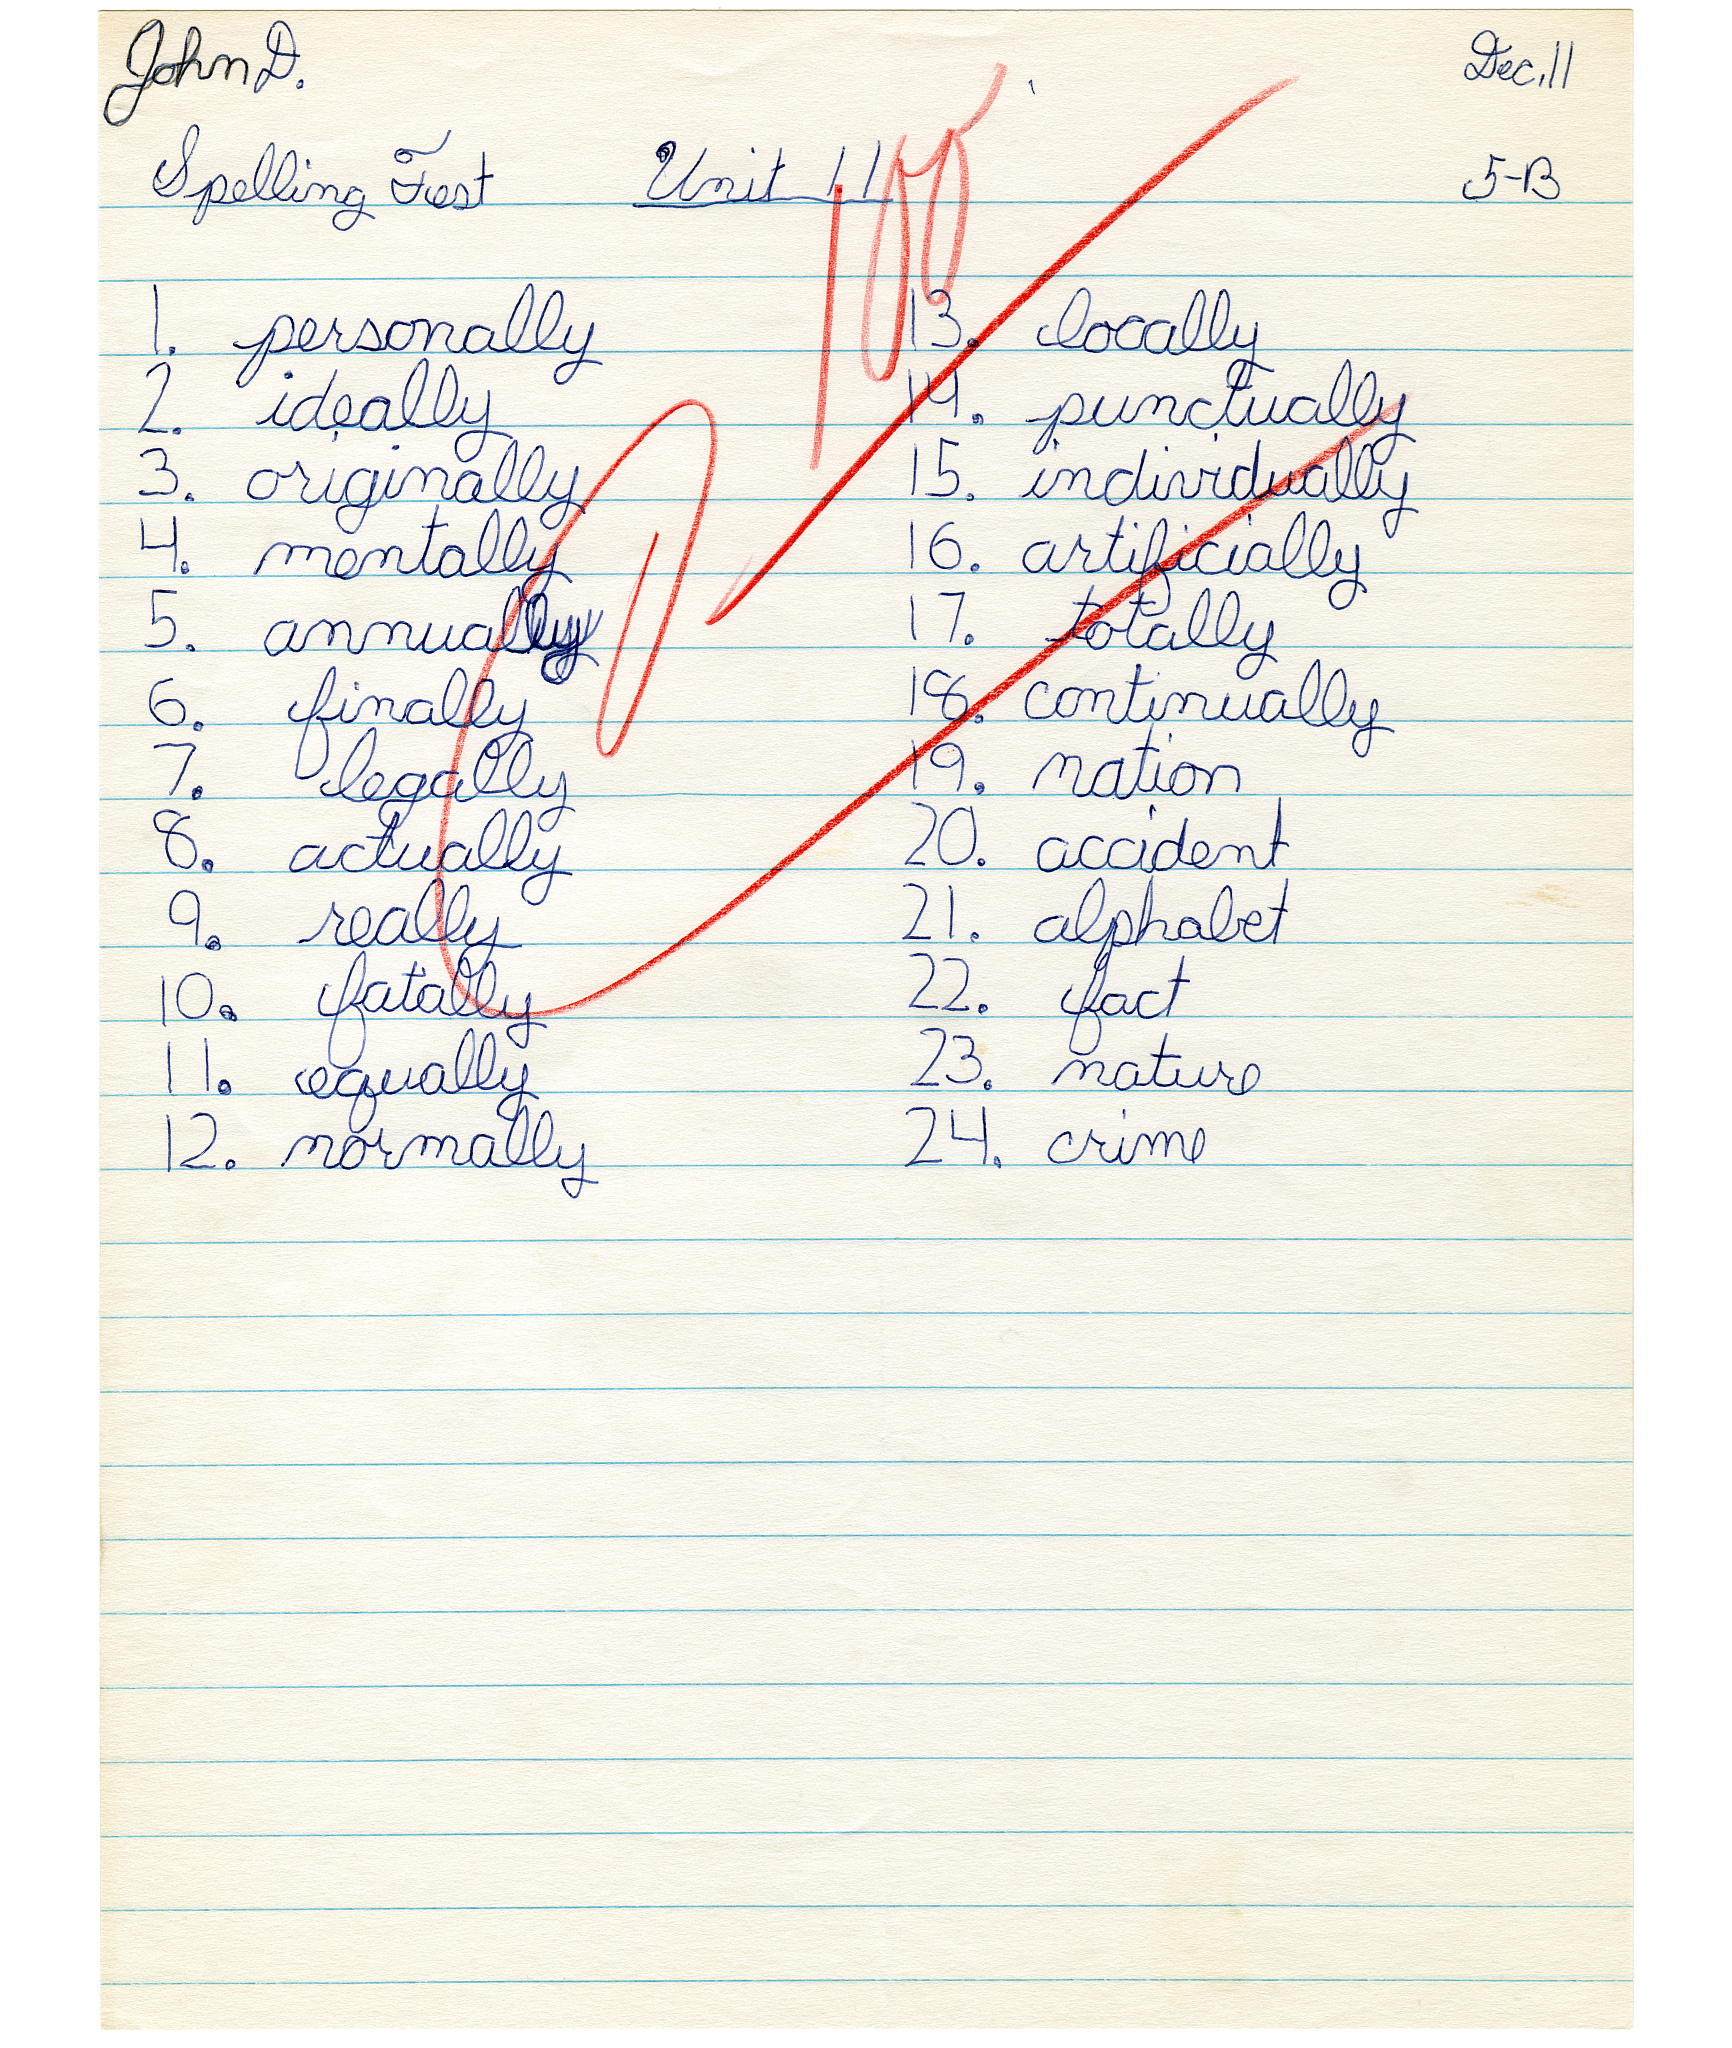 John D. Dec. 11
Spelling Test Unit 11 5-B
100
1. personally
2. ideally
3. originally
4. mentally
5. annually
6. finally
7. legally
8. actually
9. really
10. fatally
11. equally
12. normally
13. locally
14. punctually
15. individually
16. artificially
17. totally
18. continually
19. nation
20. accident
21. alphabet
22. fact
23. nature
24. crime